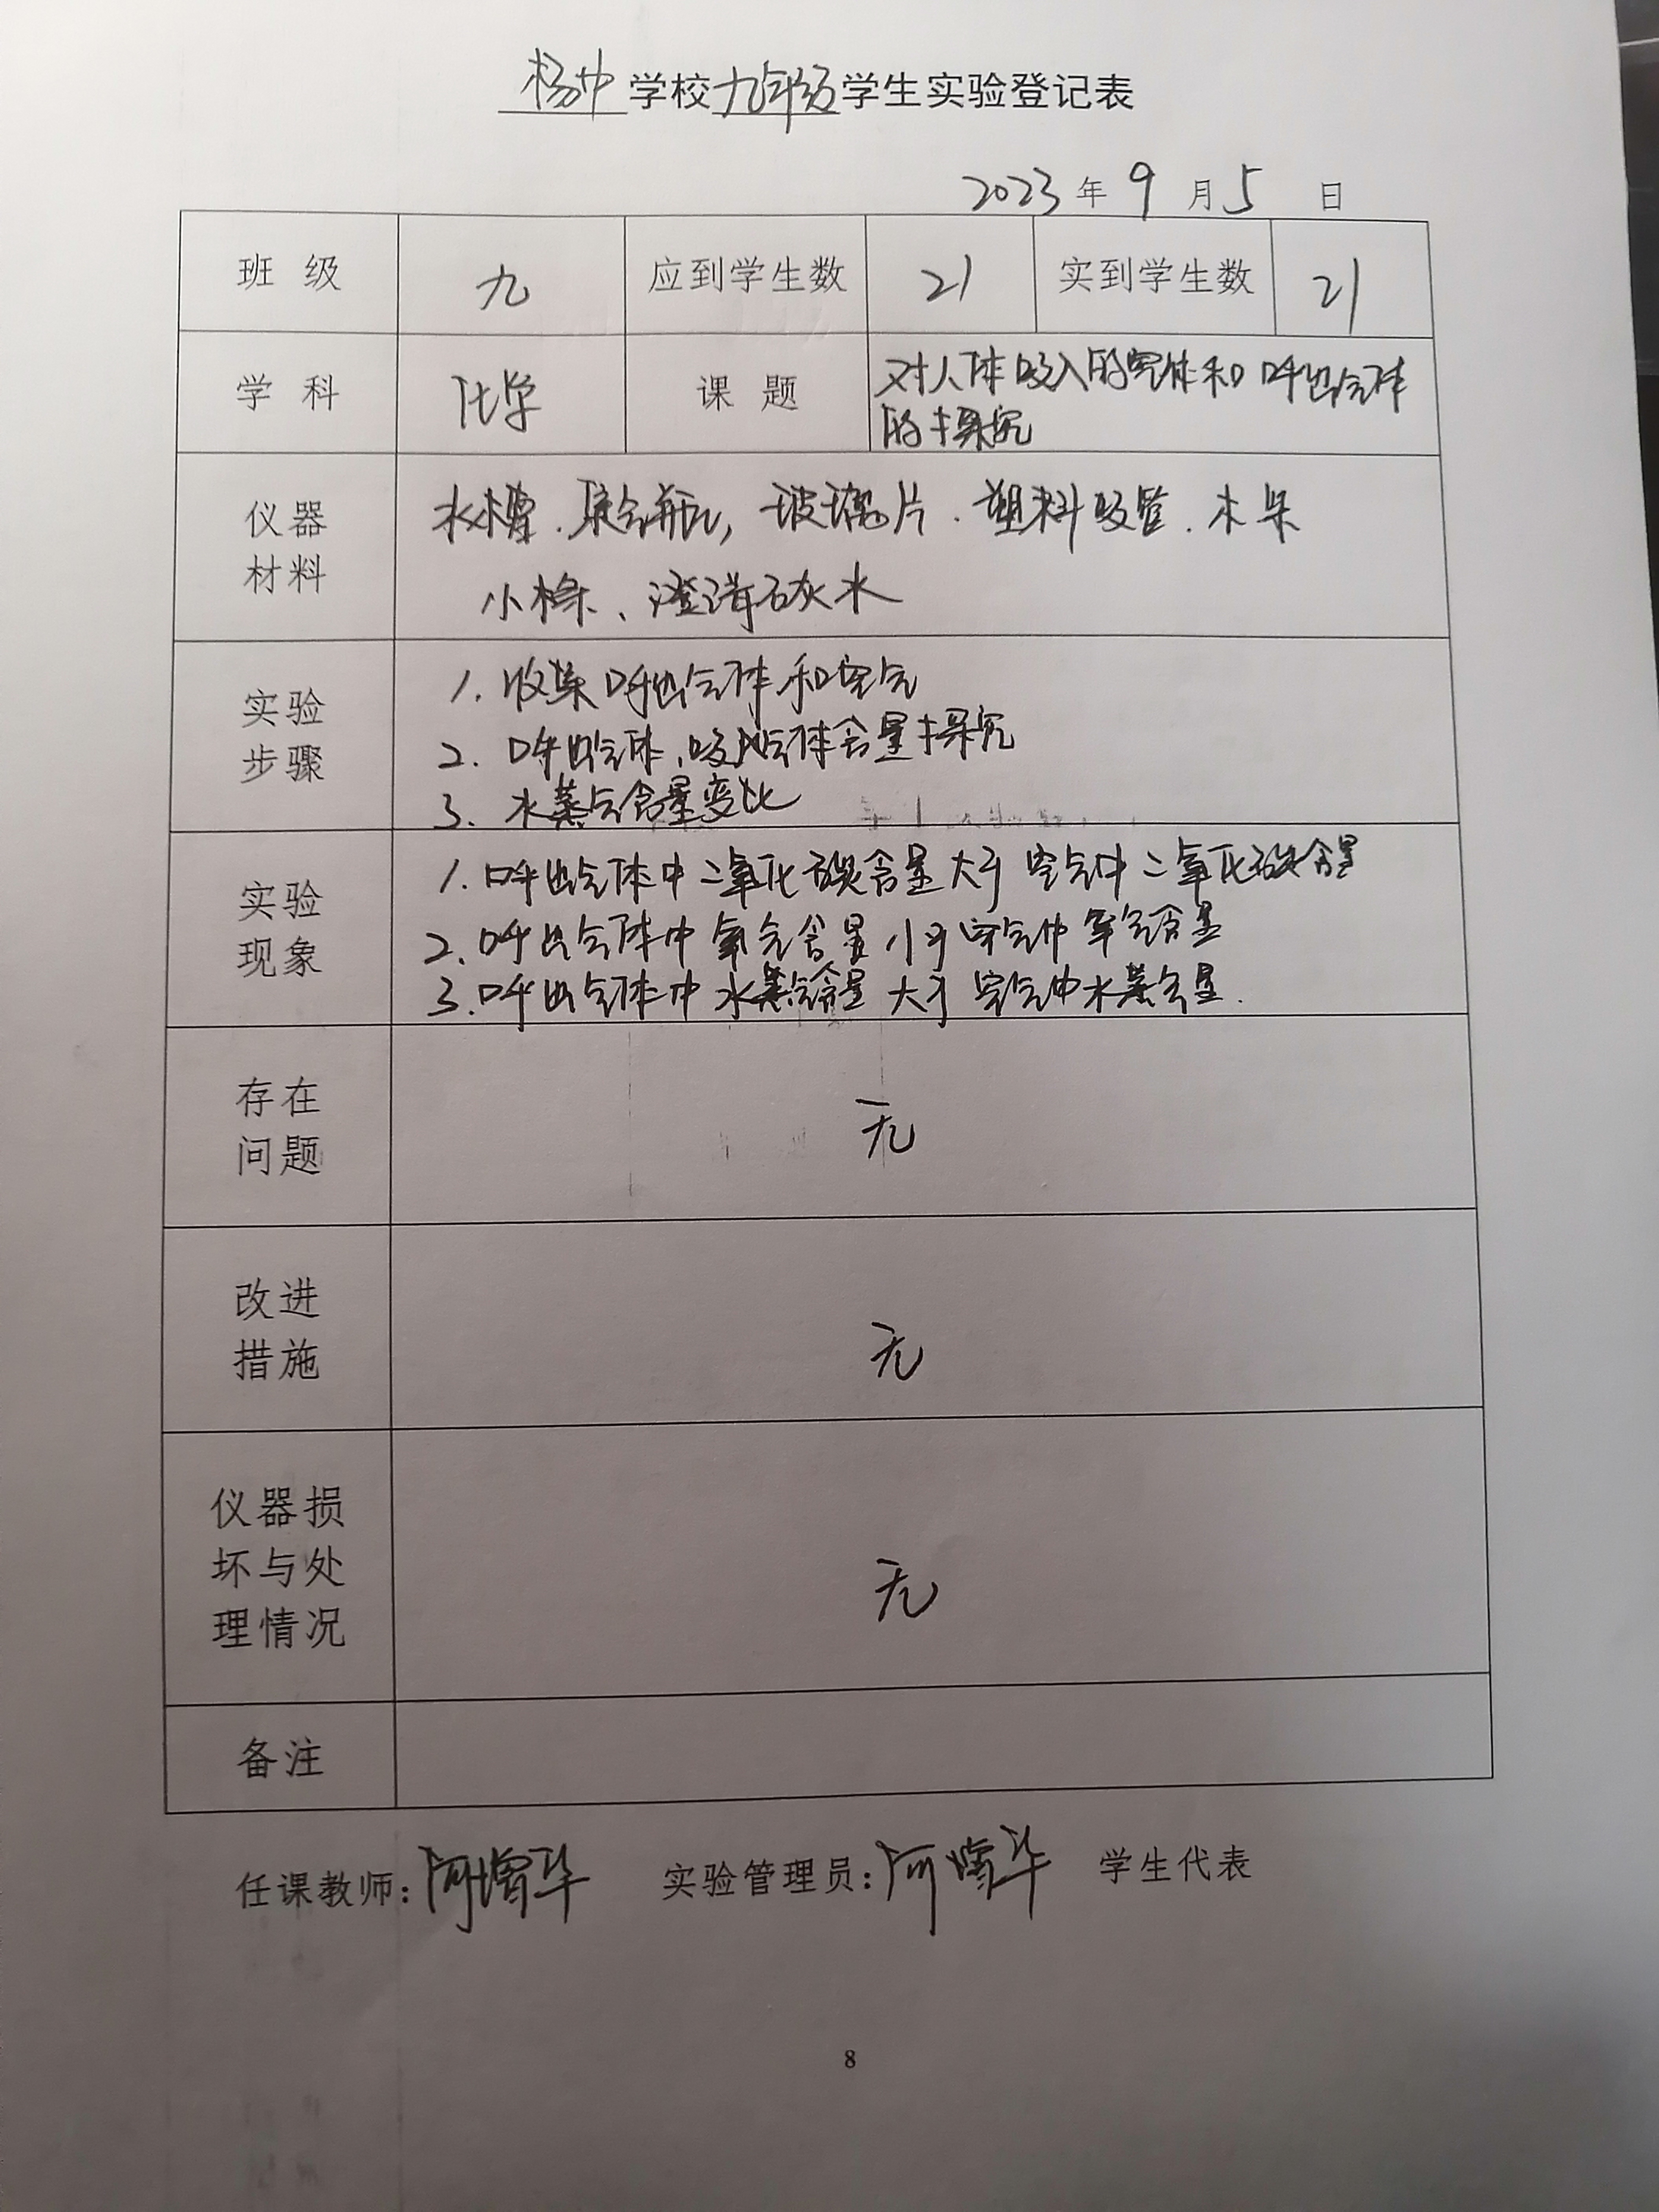 杨中学校九年级学生实验登记表
2023年9月5日
班级 九 应到学生数 21 实到学生数 21
学科 化学 课题 对人体吸入的空气和呼出气体
的探究
仪器
材料
水槽、集气瓶，玻璃片、塑料吸管、木条
小木条、澄清石灰水
实验
步骤
1. 收集呼出气体和空气
2. 呼出气体、吸入气体含量探究
3. 水蒸气含量变化
实验
现象
1. 呼出气体中二氧化碳含量大于空气中二氧化碳含量
2. 呼出气体中氧气含量小于空气中氧气含量
3. 呼出气体中水蒸气含量大于空气中水蒸气含量.
存在
问题
无
改进
措施
无
仪器损
坏与处
理情况
无
备注
任课教师：何增华 实验管理员：何增华 学生代表
8